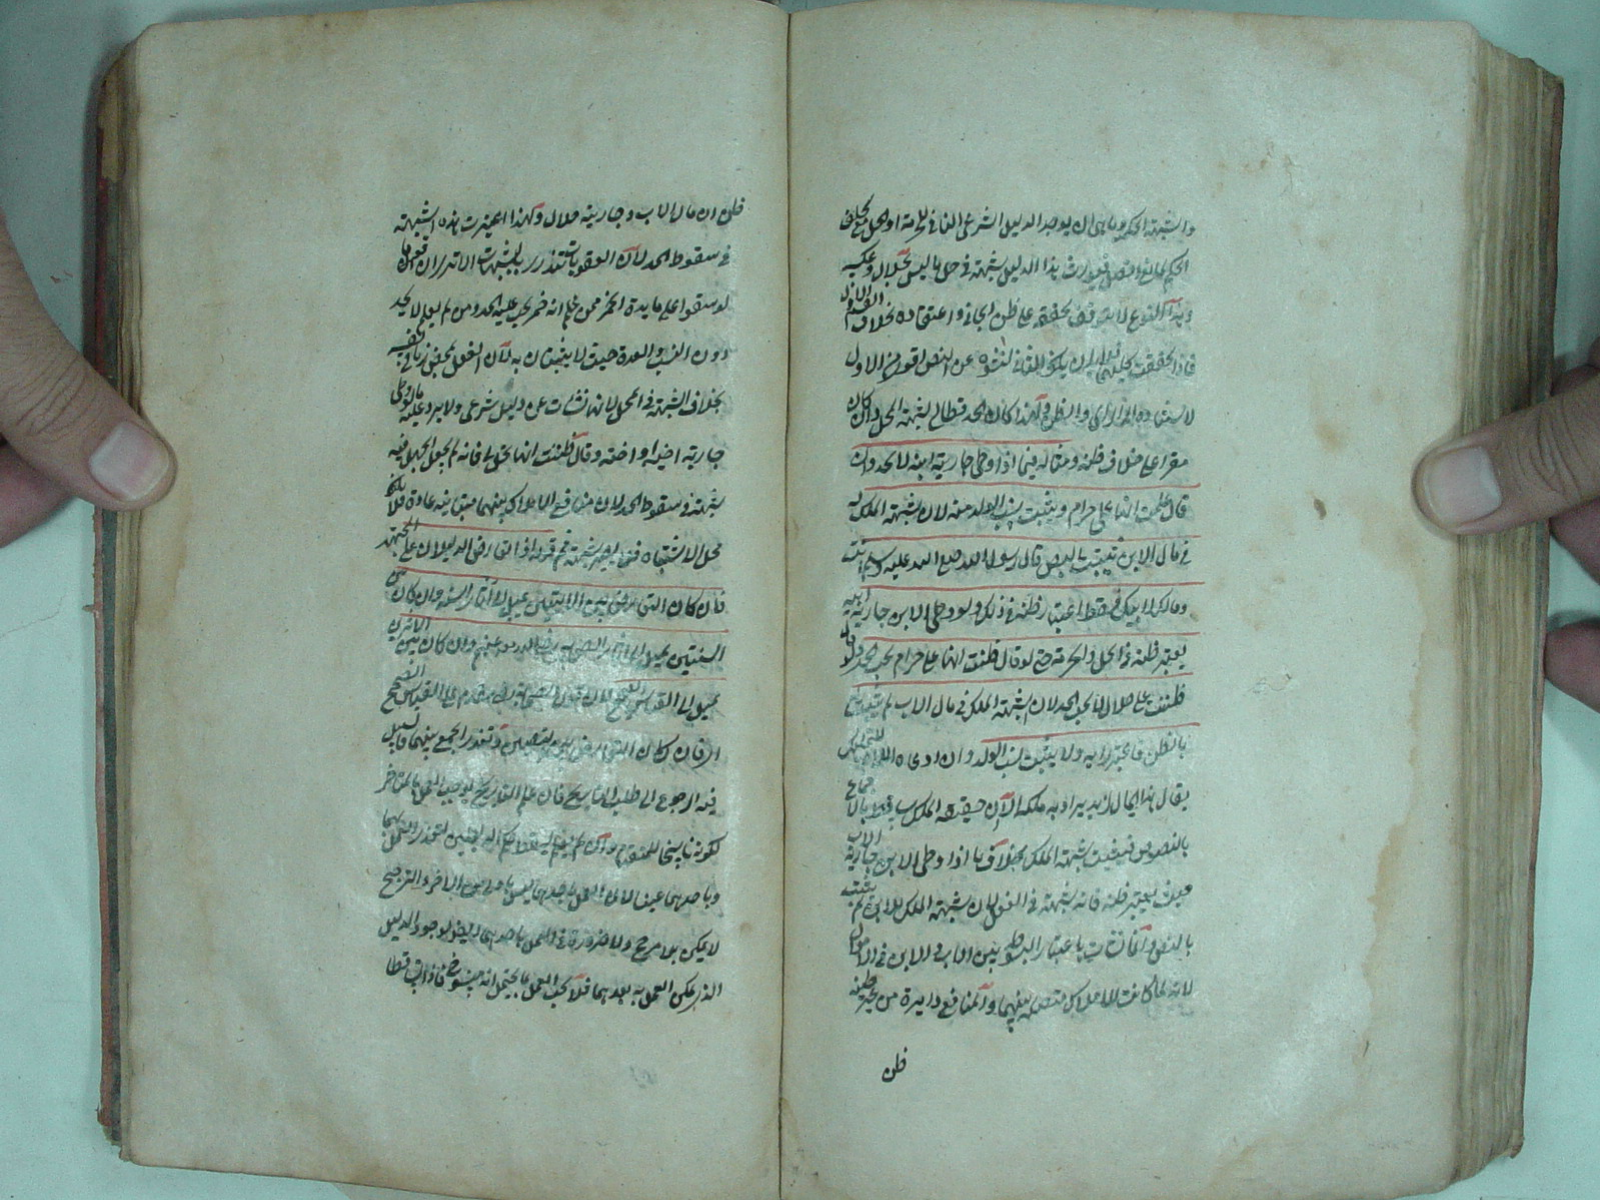 والشبهة الحكمية وهي ان يوجد الدليل الشرعي النافي للحرمة او الحل مع تخلف
الحكم لمانع اتصل فيورث هذا الدليل شبهة في حل ما ليس بحلال وعكسه
وهذا النوع لا يتوقف تحققه على ظن الجاني واعتقاده بخلاف الاول
فاذا تحققت لنشوه عن النص اقوى من الاول
لاستناده الى الراي والظن ولهذا كان الحد قط لشبهة المحل وان كان
مقرا على خلاف ظنه ومثاله فيما اذا وطئ جارية ابنه لا يحد وان
قال علمت انها علي حرام ويثبت نسب الولد منه لان شبهة الملك له
في مال الابن تثبت بالنص قال رسول الله صلى الله عليه وسلم انت
ومالك لابيك فسقط اعتبار ظنه في ذلك ولو وطئ الابن جارية ابيه
يعتبر ظنه في الحل والحرمة حتى لو قال ظننت انها علي حرام يجب الحد ولو قال
ظننت علي حلال لا يجب الحد لان شبهة الملك في مال الاب لم تثبت
بالظن ولا يثبت نسب الولد وان ادعاه اللام للتمليك
يقال هذا المال لزيد يراد به ملكه الا ان حقيقة الملك بالاجماع
بالنصوص فبقيت شبهة الملك بخلاف ما اذا وطئ الابن جارية الاب
حيث يعتبر ظنه فانه شبهة في الفعل لان شبهة الملك للابن لم يثبت
بالنص وانما باعتبار البسوطة بين الاب والابن في الاموال
لانه لما كانت الاملاك متصلة بينهما والمنافع دايرة من حيث ظنه
ظن
ظن ان مال الاب وجاريته حلال ولهذا اعتبرت هذه الشبهة
في سقوط الحد لان العقوبات تندرى بالشبهات الا ترى ان قوما
لو سقوا على مايدة الخمر فمن علم انه خمر يجب عليه الحد ومن لم يعلم لا يحد
دون النسب والعدة حيث لا يثبتان به لان الفعل تمحض زنا في نفسه
بخلاف الشبهة في المحل لانها نشات عن دليل شرعي ولا يرد عليه ما لو وطئ
جارية اخيه او اخته وقال ظننت انها تحل لي فانه لم يجعل الجهل فيه
شبهة في سقوط الحد لان منافع الاملاك بينهما متباينة عادة فلا يكون
محل الاشتباه فلا يصير شبهة ثم قوله اذا تعارض الدليلان على المجتهد
فان كان التعارض بين الايتين يميل الى السنة وان كان بين
السنتين يميل الى اثار الصحابة رضي الله عنهم وان كان بين الاثرين
يميل الى القياس الصحيح لان قول الصحابة مقدم على القياس الصحيح
او فان كان التعارض بين وتعذر الجمع بينهما قيل
فيه الرجوع الى طلب التاريخ فان علم التاريخ يوجب العمل بالمتاخر
لكونه ناسخا للمتقدم وان لم يعلم لتعذر العمل بهما
وباحدهما عينا لان العمل باحدهما ليس باولى من الاخر والترجيح
لا يمكن بلا مرجح ولا ضرورة في العمل باحدهما لوجود الدليل
الذي يمكن العمل به بعدهما فلا يجب العمل بما يحتمل انه منسوخ فاذا